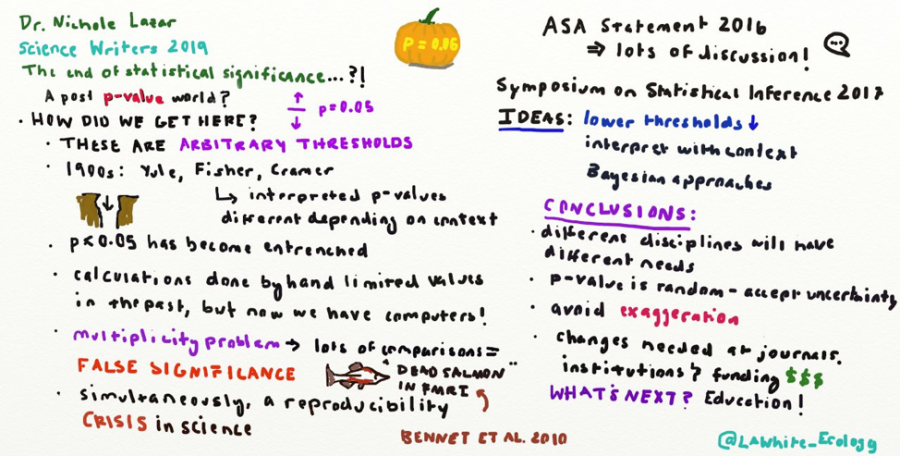 Dr. Nichole Lazar
Science Writers 2019
The end of statistical significance...?!
A post p-value world?
p=0.05
• HOW DID WE GET HERE?
• THESE ARE ARBITRARY THRESHOLDS
• 1900s: Yule, Fisher, Cramer
↳ interpreted p-values
different depending on context
• p<0.05 has become entrenched
• calculations done by hand limited values
in the past, but now we have computers!
• multiplicity problem → lots of comparisons =
FALSE SIGNIFICANCE
"DEAD SALMON"
IN FMRI
• simultaneously, a reproducibility
CRISIS in science
BENNET ET AL. 2010
P = 0.06
ASA Statement 2016
⇒ lots of discussion!
Symposium on Statistical Inference 2017
IDEAS: lower thresholds ↓
interpret with context
Bayesian approaches
CONCLUSIONS:
• different disciplines will have
different needs
• p-value is random - accept uncertainty
• avoid exaggeration
• changes needed at journals,
institutions & funding $$$
WHAT'S NEXT? Education!
@LAWhite_Ecology